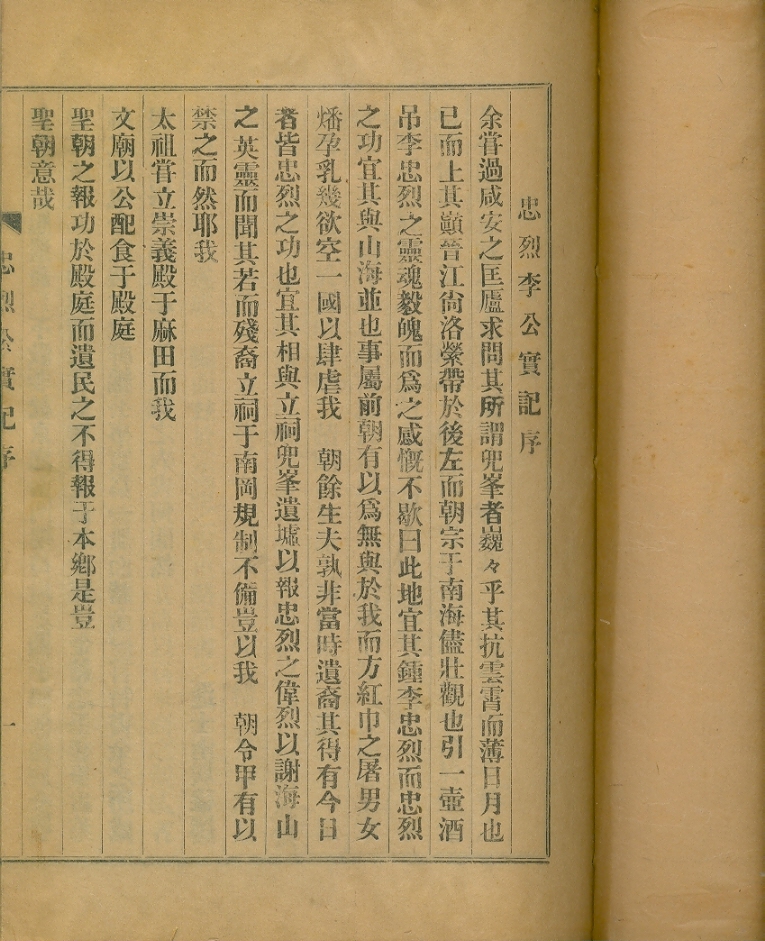 忠烈李公實記序
余嘗過咸安之匡廬求問其所謂兜峯者巍々乎其抗雲霄而薄日月也
已而上其巓晉江尙洛縈帶於後左而朝宗于南海儘壯觀也引一壺酒
吊李忠烈之靈魂毅魄而爲之感慨不歇曰此地宜其鍾李忠烈而忠烈
之功宜其與山海並也事屬前朝有以爲無與於我而方紅巾之屠男女
燔孕乳幾欲空一國以肆虐我　朝餘生夫孰非當時遺裔其得有今日
者皆忠烈之功也宜其相與立祠兜峯遺墟以報忠烈之偉烈以謝海山
之英靈而聞其若而殘裔立祠于南岡規制不備豈以我　朝令甲有以
禁之而然耶我
太祖嘗立崇義殿于麻田而我
文廟以公配食于殿庭
聖朝之報功於殿庭而遺民之不得報于本鄕是豈
聖朝意哉
忠烈公實記序
一